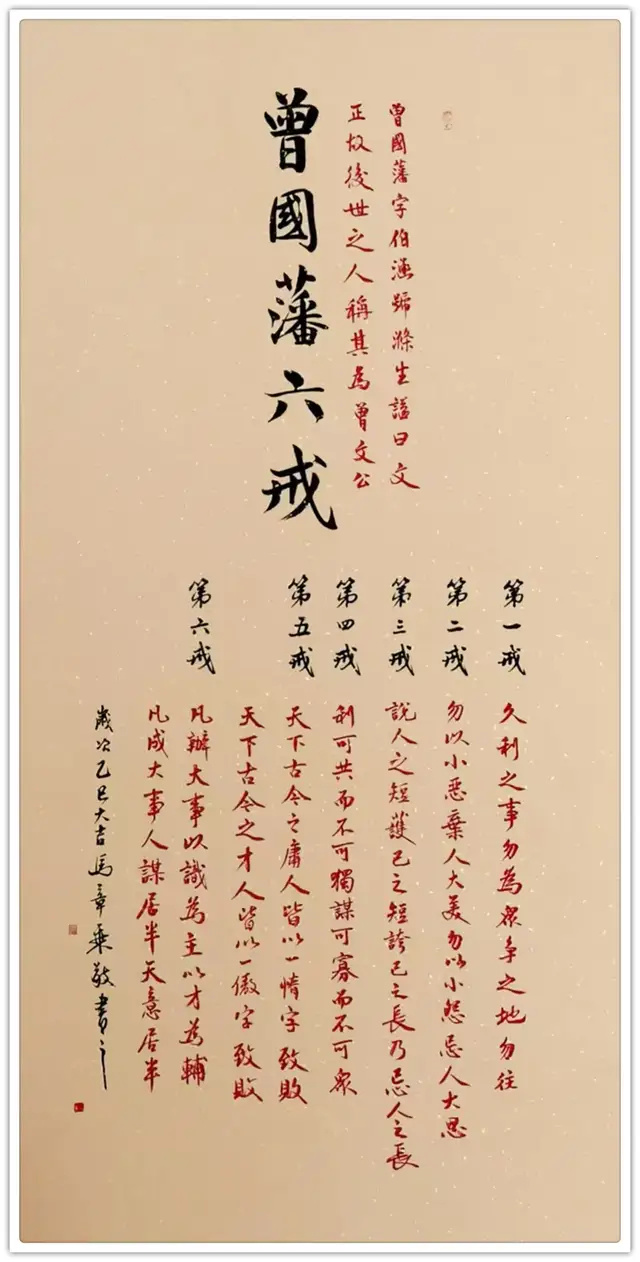 曾國藩字伯涵號滌生謚曰文
正故後世之人稱其為曾文公
曾國藩六戒
第一戒
久利之事勿為眾爭之地勿往
第二戒
勿以小惡棄人大美勿以小怨忌人大恩
第三戒
說人之短護己之短誇己之長乃忌人之長
第四戒
利可共而不可獨謀可寡而不可眾
第五戒
天下古今之庸人皆以一惰字致敗
天下古今之才人皆以一傲字致敗
第六戒
凡辦大事以識為主以才為輔
凡成大事人謀居半天意居半
歲次乙巳大吉馬章乘敬書之